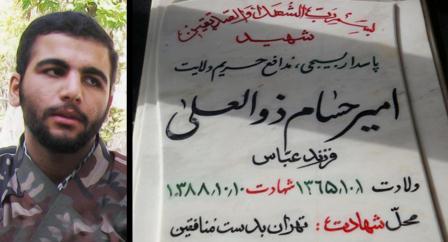 بسم رب الشهداء والصدیقین
شهید
پاسدار بسیجی، مدافع حریم ولایت
امیر حسام ذوالعلی
فرزند عباس
ولادت ۱۳۶۵،۱۰،۱ شهادت ۱۳۸۸،۱۰،۱۰
محل شهادت: تهران بدست منافقین